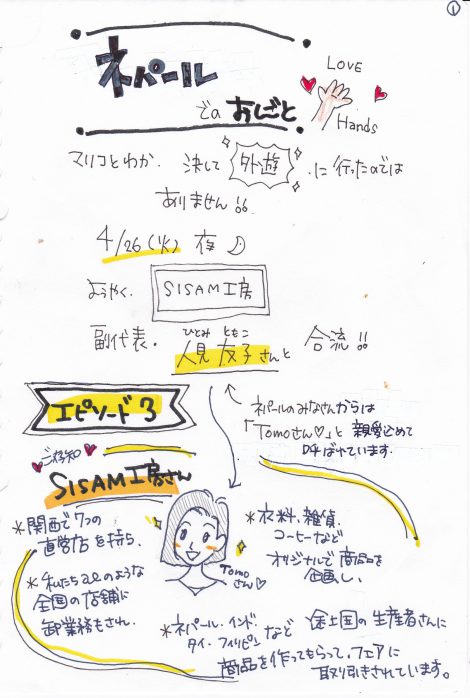 ①
ネパール
でのおしごと
LOVE
Hands
マリコとわか、決して外遊に行ったのでは
ありません!!
4/26(火)夜
ようやく、SISAM工房
副代表・人見友子さんと合流!!
ひとみ ともこ
エピソード3
ネパールのみなさんからは
「Tomoさん♡」と親愛込めて
呼ばれています。
ご存知
SISAM工房さん
*関西で7つの
直営店を持ち、
*私たちaeのような
全国の店舗に
卸業務もされ、
Tomo
さん♡
*衣料、雑貨、
コーヒーなど
オリジナルで商品を
企画し、
*ネパール・インド・
タイ・フィリピンなど 途上国の生産者さんに
商品を作ってもらって、フェアに
取り引きされています。